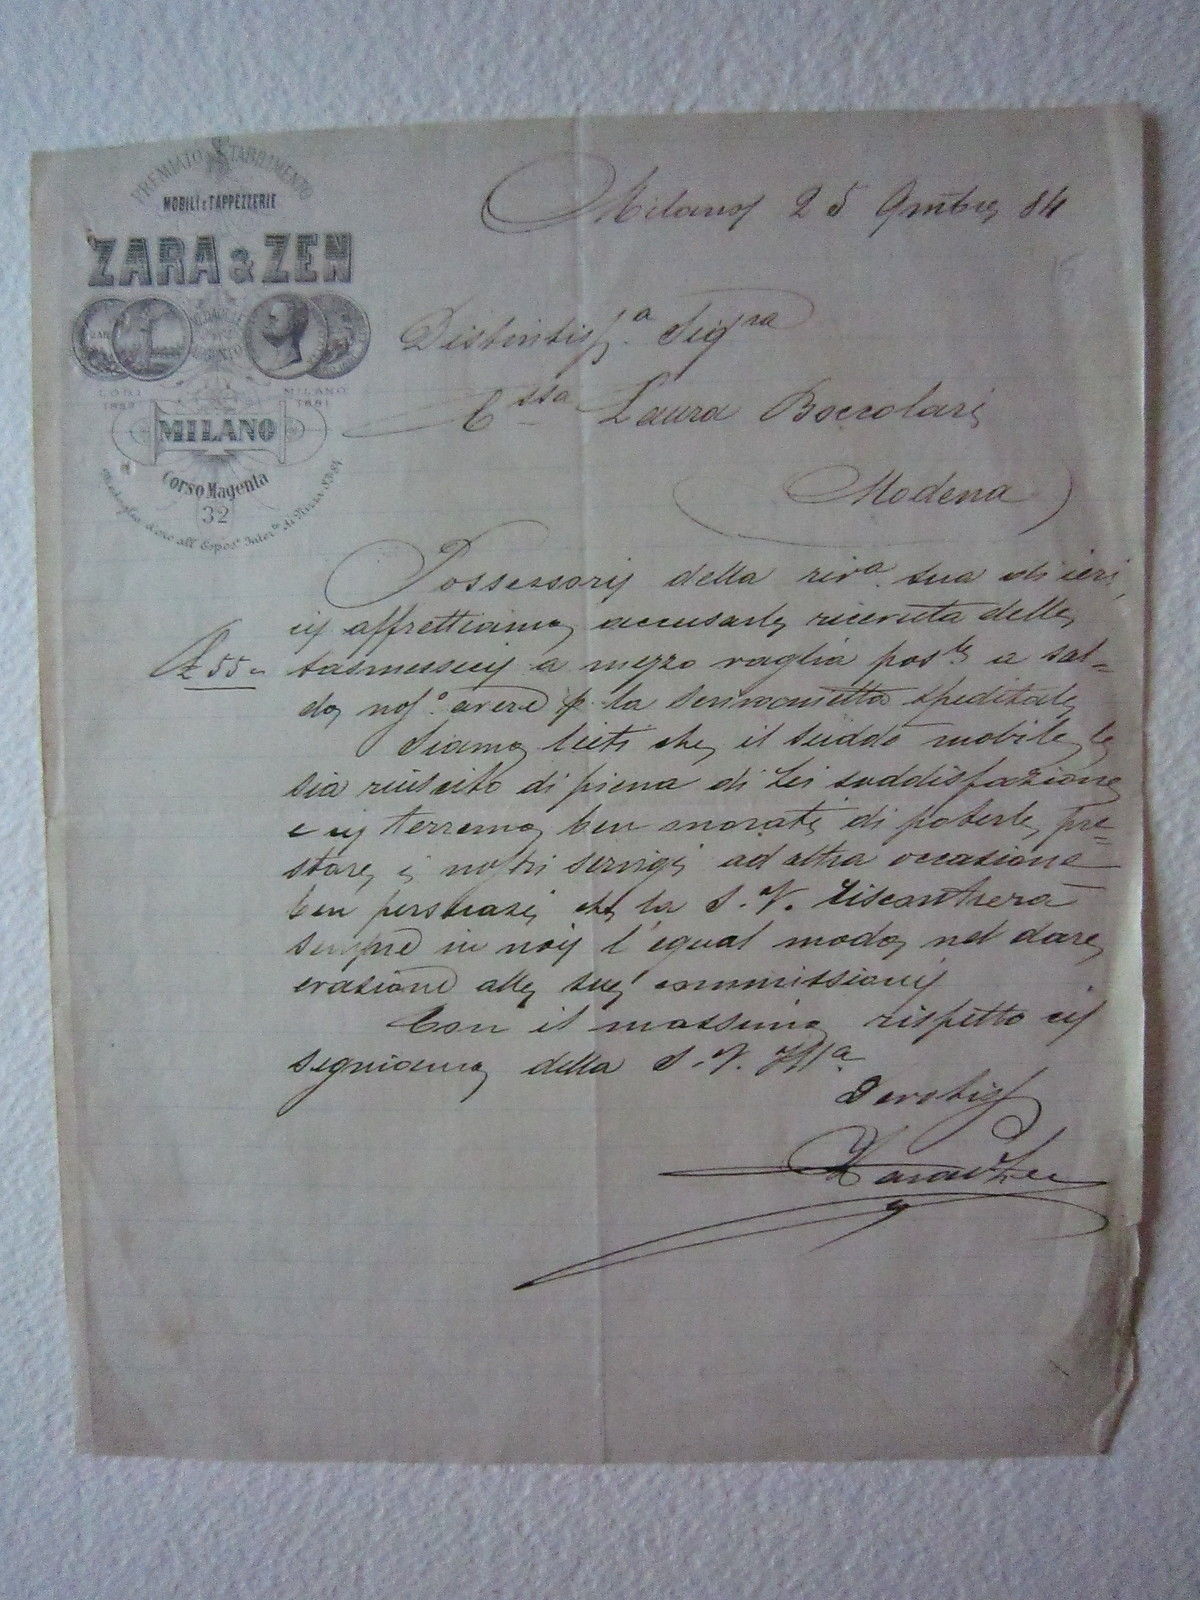 PREMIATO STABILIMENTO
MOBILI e TAPPEZZERIE
ZARA & ZEN
LODI MILANO
1881
MILANO
Corso Magenta
32
Medaglia d'oro all' Espos.e di Nizza
Milano 25 9mbre 84
Distintiss.a Sig.ra
C.ssa Laura Boccolari
Modena
Possessori della riv.a sua di ieri,
ci affrettiamo accusarle ricevuta delle
£ 55 tasmesseci a mezzo vaglia post.e a sal=
do ns.o avere p. la speditale
Siamo lieti che il sudd.o mobile le
sia riuscito di piena di Lei soddisfazione
e ci terremo ben onorati di poterle pre=
stare i nostri servigi ad altra occasione
ben persuasi che la S. V. riscontrerà
sempre in noi l'egual modo nel dare
evasione alle sue commissioni
Con il massimo rispetto ci
segniamo della S. V. Ill.a
Devotiss.
Zara & Zen